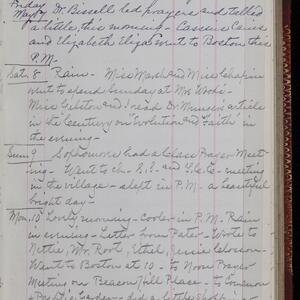 Friday
May 7 Mr. Bissell led prayers and talked
a little, this morning - Cassius Caius
and Elizabeth Eliza went to Boston this
P.M.
Sat. 8 Rain - Miss Marsh and Miss Chapin
went to spend Sunday at Mrs.
Miss Gilson and I read Dr. Munger's article
in the Century on "Evolution and Faith" in
the evening -
Sun. 9 Sophomore had a Class Prayer Meet-
ing - Went to the meeting
in the village - slept in P.M. a beautiful
bright day -
Mon. 10 Lovely morning - Cooler in P.M. Rain
in evening - Letter from Pater - Wrote to
Nettie, Mr. Root, Ethel, Jennie Closson -
Went to Boston at 10 - to Noon Prayer
Meeting on Beacon Hill Place - to Common
Public Garden - did a little shopping